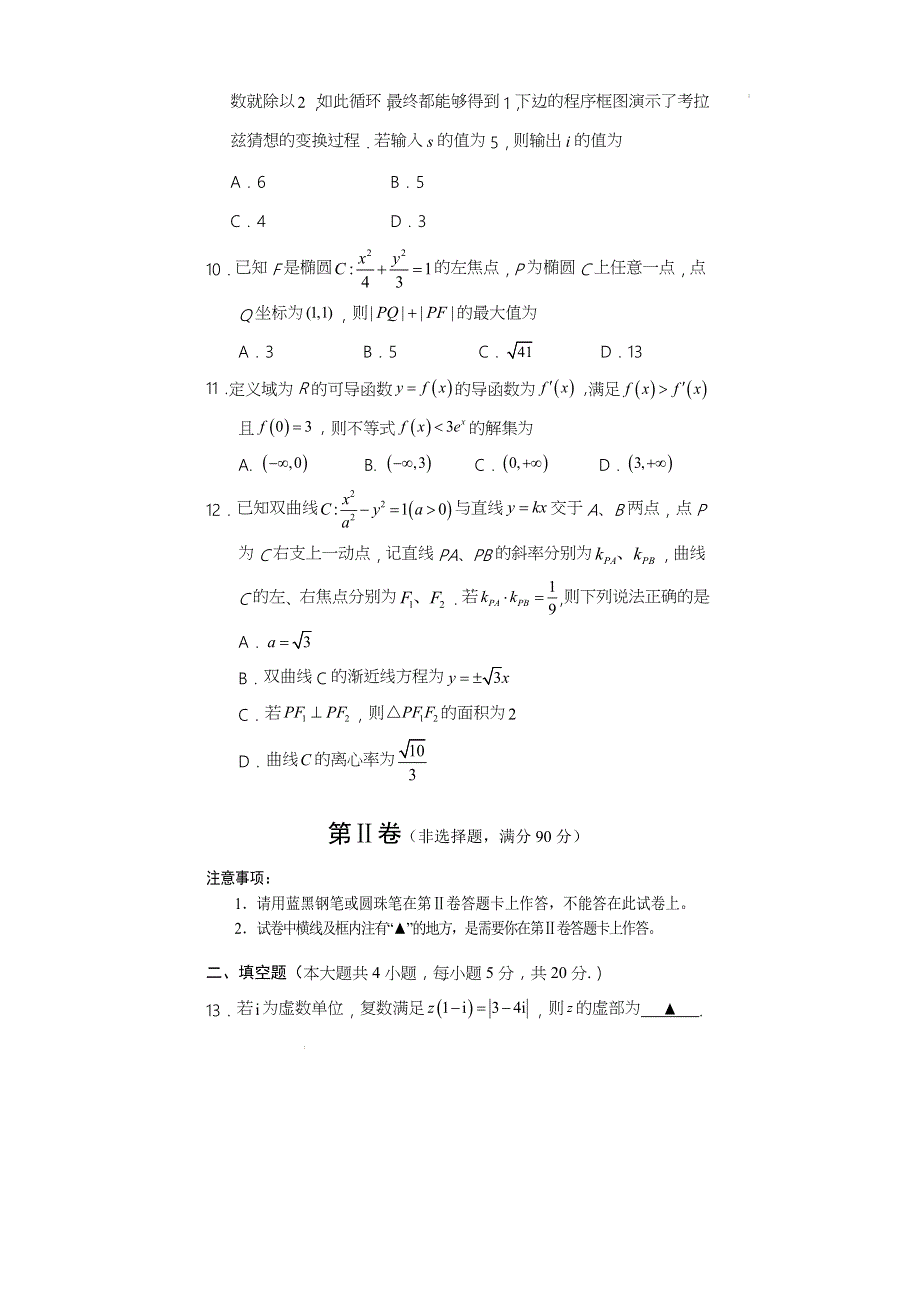 数就除以 2，如此循环，最终都能够得到 1，下边的程序框图演示了考拉
兹猜想的变换过程．若输入 s 的值为 5，则输出 i 的值为
A．6 B．5
C．4 D．3
10．已知 F 是椭圆 C : x²/4 + y²/3 = 1 的左焦点，P 为椭圆 C 上任意一点，点
Q 坐标为 (1,1)，则 | PQ | + | PF | 的最大值为
A．3 B．5 C．√41 D．13
11．定义域为 R 的可导函数 y = f(x) 的导函数为 f′(x)，满足 f(x) > f′(x)
且 f(0) = 3，则不等式 f(x) < 3eˣ 的解集为
A. (−∞,0) B. (−∞,3) C．(0,+∞) D．(3,+∞)
12．已知双曲线 C : x²/a² − y² = 1(a > 0) 与直线 y = kx 交于 A、B 两点，点 P
为 C 右支上一动点，记直线 PA、PB 的斜率分别为 k_PA、k_PB，曲线
C 的左、右焦点分别为 F₁、F₂．若 k_PA · k_PB = 1/9，则下列说法正确的是
A．a = √3
B．双曲线 C 的渐近线方程为 y = ±√3x
C．若 PF₁ ⊥ PF₂，则 △PF₁F₂ 的面积为 2
D．曲线 C 的离心率为 √10/3
第Ⅱ卷（非选择题，满分 90 分）
注意事项：
1．请用蓝黑钢笔或圆珠笔在第Ⅱ卷答题卡上作答，不能答在此试卷上。
2．试卷中横线及框内注有“▲”的地方，是需要你在第Ⅱ卷答题卡上作答。
二、填空题（本大题共 4 小题，每小题 5 分，共 20 分．）
13．若 i 为虚数单位，复数满足 z(1−i) = |3−4i|，则 z 的虚部为___▲___.